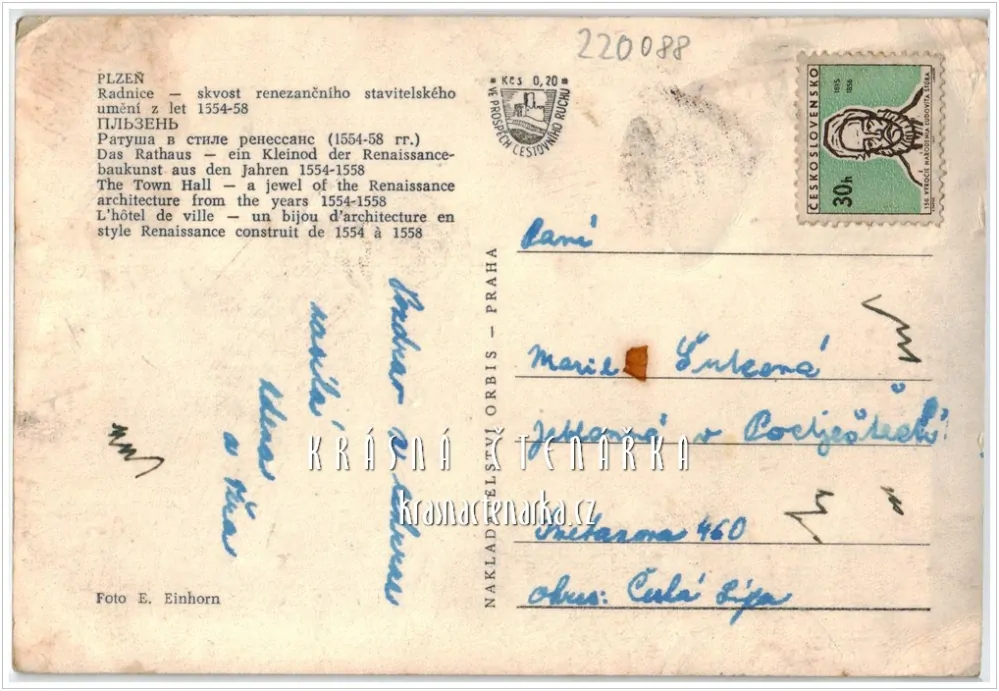 220088
PLZEŇ
Radnice — skvost renezančního stavitelského
umění z let 1554-58
ПЛЬЗЕНЬ
Ратуша в стиле ренессанс (1554-58 гг.)
Das Rathaus — ein Kleinod der Renaissance-
baukunst aus den Jahren 1554-1558
The Town Hall — a jewel of the Renaissance
architecture from the years 1554-1558
L'hôtel de ville — un bijou d'architecture en
style Renaissance construit de 1554 à 1558
Kčs 0,20
VE PROSPĚCH CESTOVNÍHO RUCHU
ČESKOSLOVENSKO
30h
1815
1856
150. VÝROČIE NARODENIA ĽUDOVÍTA ŠTÚRA
Pozdrav z
Zdena
a
Paní
Marie
v Podještědí
Smetanova 460
okres: Česká Lípa
NAKLADATELSTVÍ ORBIS — PRAHA
KRÁSNÁ ČTENÁŘKA
krasnactenarka.cz
Foto E. Einhorn